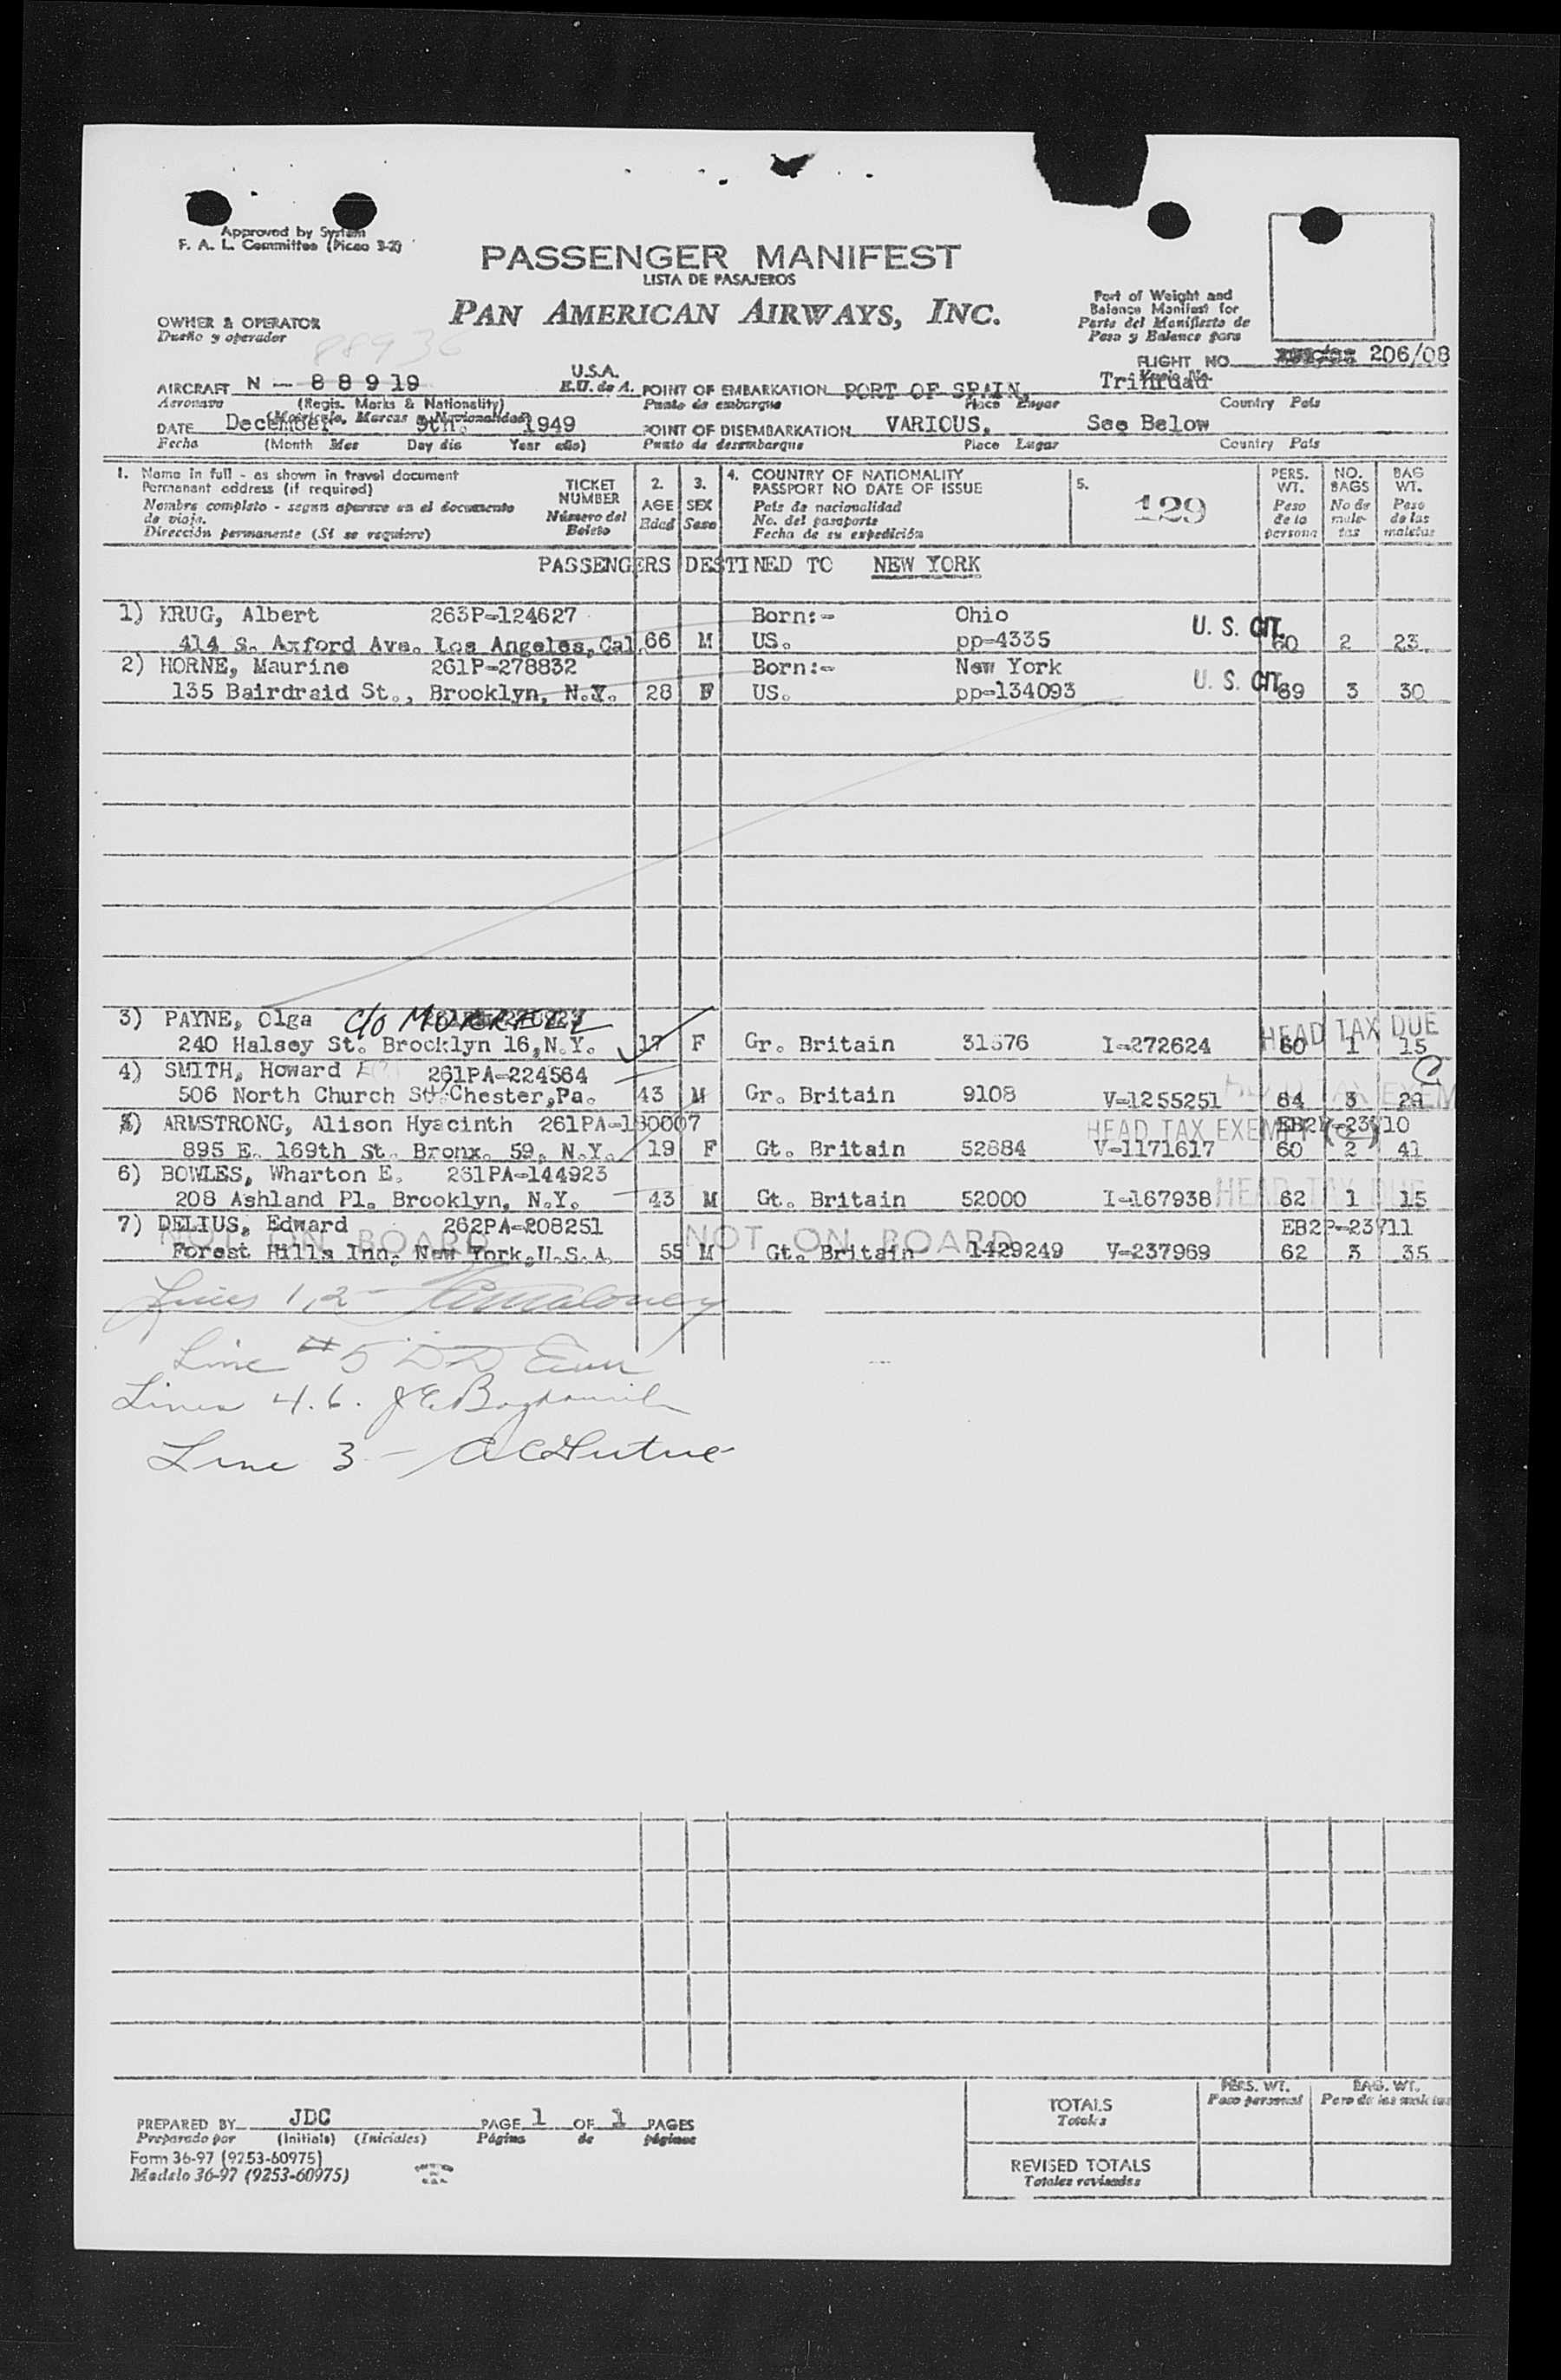 Approved by System
F. A. L. Committee (Picao 3-2)
PASSENGER MANIFEST
LISTA DE PASAJEROS
PAN AMERICAN AIRWAYS, INC.
OWNER & OPERATOR
Dueño y operador
88936
Part of Weight and
Balance Manifest for
Parte del Manifiesto de
Peso y Balance para
FLIGHT NO. 206/08
AIRCRAFT N - 88919 U.S.A. POINT OF EMBARKATION PORT OF SPAIN, Trinidad
Aeronave (Regis. Marks & Nationality) E.U. de A. Punto de embarque Place Lugar Country País
(Matrícula, Marcas y Nacionalidad)
DATE December 9th. 1949 POINT OF DISEMBARKATION VARIOUS, See Below
Fecha (Month Mes Day dia Year año) Punto de desembarque Place Lugar Country País
1. Name in full - as shown in travel document
Permanent address (if required)
Nombre completo - segun aparece en el documento
de viaje.
Dirección permanente (Si se requiere)
TICKET
NUMBER
Número del
Boleto
2.
AGE
Edad
3.
SEX
Sexo
4. COUNTRY OF NATIONALITY
PASSPORT NO DATE OF ISSUE
País de nacionalidad
No. del pasaporte
Fecha de su expedición
5.
129
PERS.
WT.
Peso
de la
persona
NO.
BAGS
No de
male-
tas
BAG
WT.
Peso
de las
maletas
PASSENGERS DESTINED TO NEW YORK
1) KRUG, Albert 263P-124627 Born:- Ohio
414 S. Axford Ave. Los Angeles, Cal. 66 M US. pp-4335 U. S. CIT. 60 2 23
2) HORNE, Maurine 261P-278832 Born:- New York
135 Bairdraid St., Brooklyn, N.Y. 28 F US. pp-134093 U. S. CIT. 69 3 30
3) PAYNE, Olga c/o
240 Halsey St. Brooklyn 16, N.Y. 17 F Gr. Britain 31576 I-272624 HEAD TAX DUE 60 1 15
4) SMITH, Howard 261PA-224564
506 North Church St. Chester, Pa. 43 M Gr. Britain 9108 V-1255251 64 3 29
5) ARMSTRONG, Alison Hyacinth 261PA-130007 HEAD TAX EXEMPT (C) EB2P-23710
895 E. 169th St. Bronx. 59, N.Y. 19 F Gt. Britain 52884 V-1171617 60 2 41
6) BOWLES, Wharton E. 261PA-144923
208 Ashland Pl. Brooklyn, N.Y. 43 M Gt. Britain 52000 I-167938 HEAD TAX DUE 62 1 15
7) DELIUS, Edward 262PA-208251 EB2P-23711
NOT ON BOARD NOT ON BOARD
Forest Hills Inn, New York, U.S.A. 55 M Gt. Britain 1429249 V-237969 62 3 35
Lines 1,2 -
Line #5
Lines 4.6.
Line 3 -
TOTALS
Totales
PERS. WT.
Peso personal
BAG. WT.
Peso de las maletas
PREPARED BY JDC PAGE 1 OF 1 PAGES
Preparado por (Initials) (Iniciales) Página de páginas
Form 36-97 (9253-60975)
Modelo 36-97 (9253-60975)
REVISED TOTALS
Totales revisados